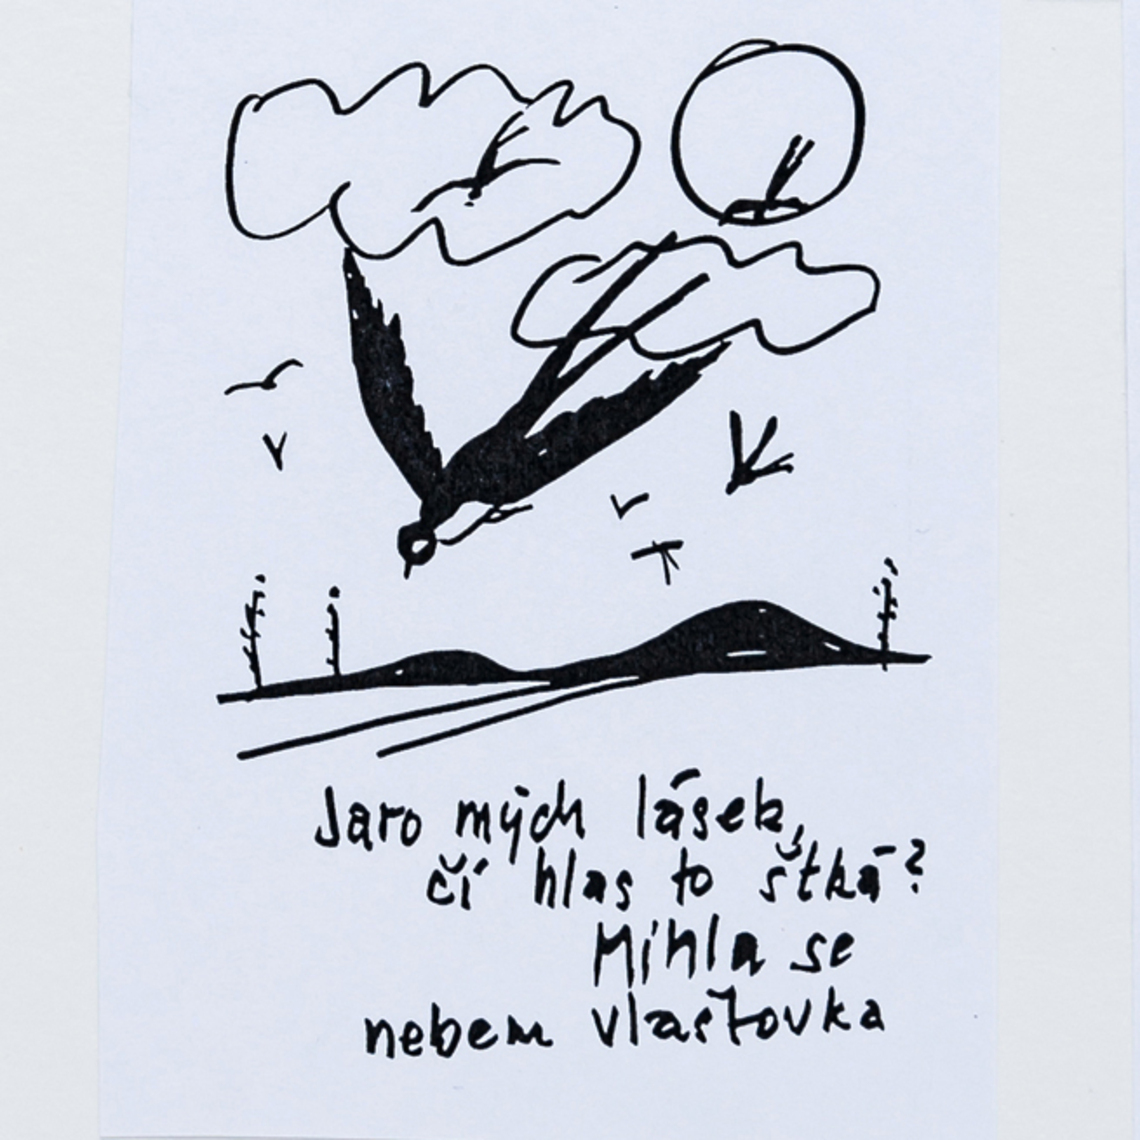 Jaro mých lásek,
čí hlas to štká?
Mihla se
nebem vlaštovka